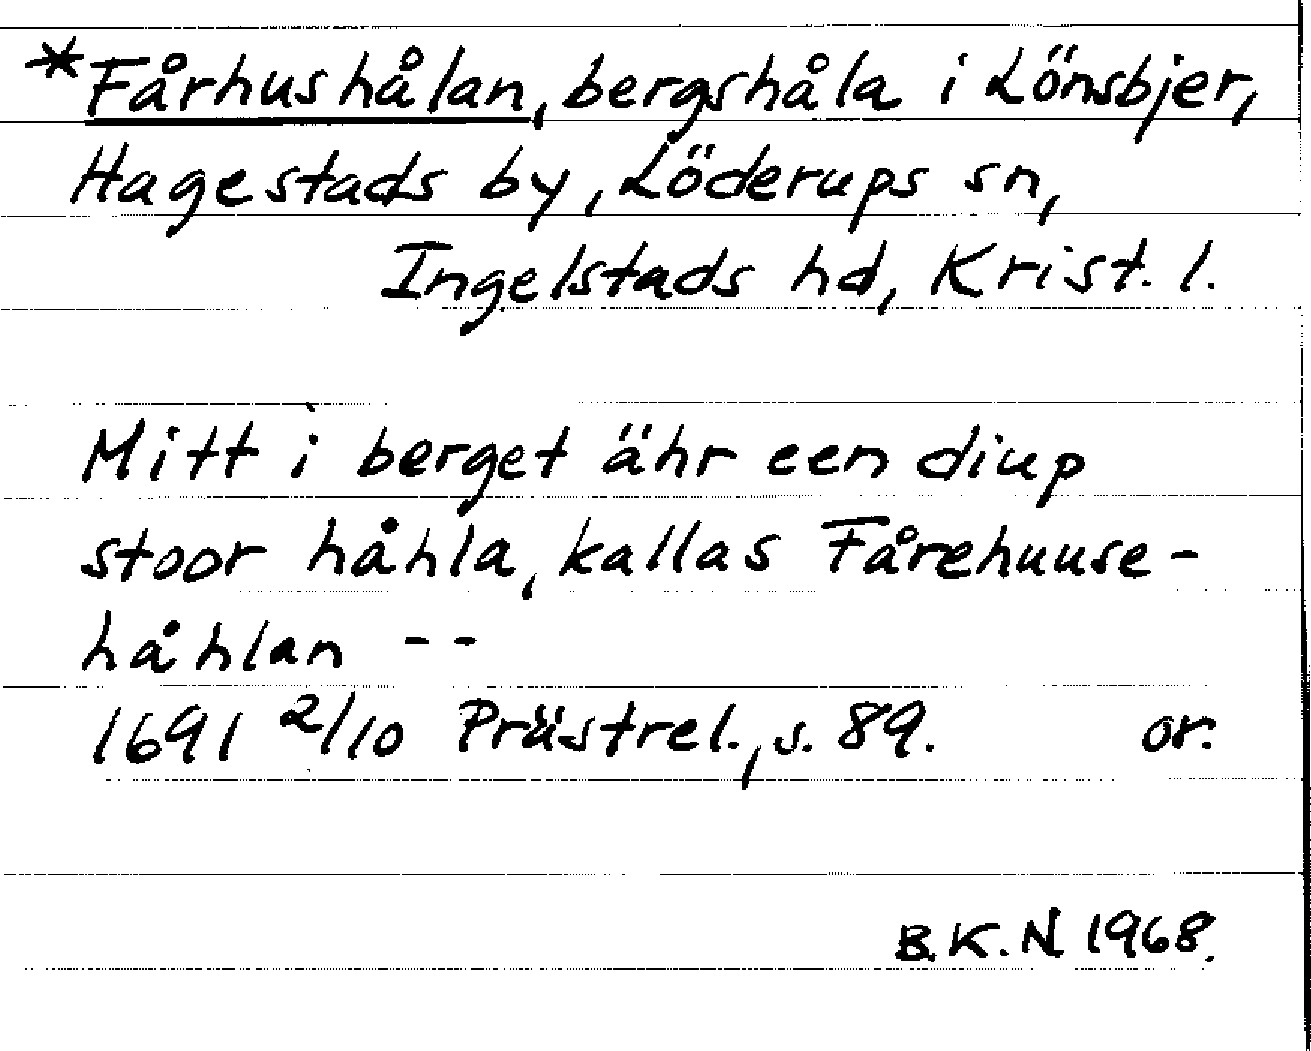 *Fårhushålan, bergshåla i Lönsbjer,
Hagestads by, Löderups sn,
Ingelstads hd, Krist. l.
Mitt i berget ähr een diup
stoor håhla, kallas Fårehuuse-
håhlan --
1691 2/10 Prästrel., s. 89. or.
B.K.N 1968.